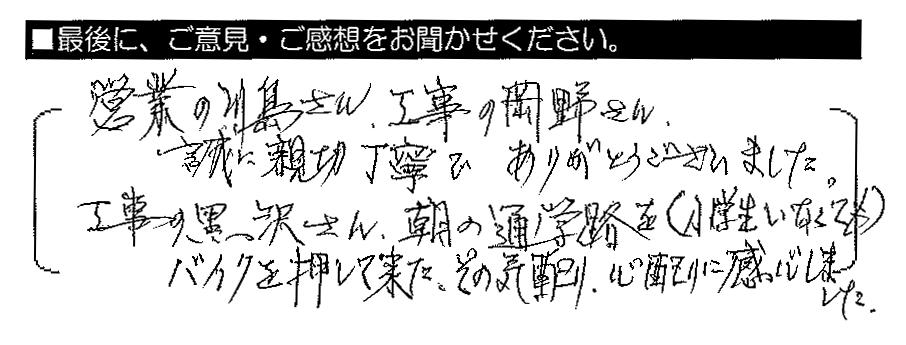 ■最後に、ご意見・ご感想をお聞かせください。
営業の川島さん、工事の岡野さん、
誠に親切丁寧で ありがとうございました。
工事の黒沢さん、朝の通学路を(小学生いなくても)
バイクを押して来た、その気配り、心配りに感心しました。